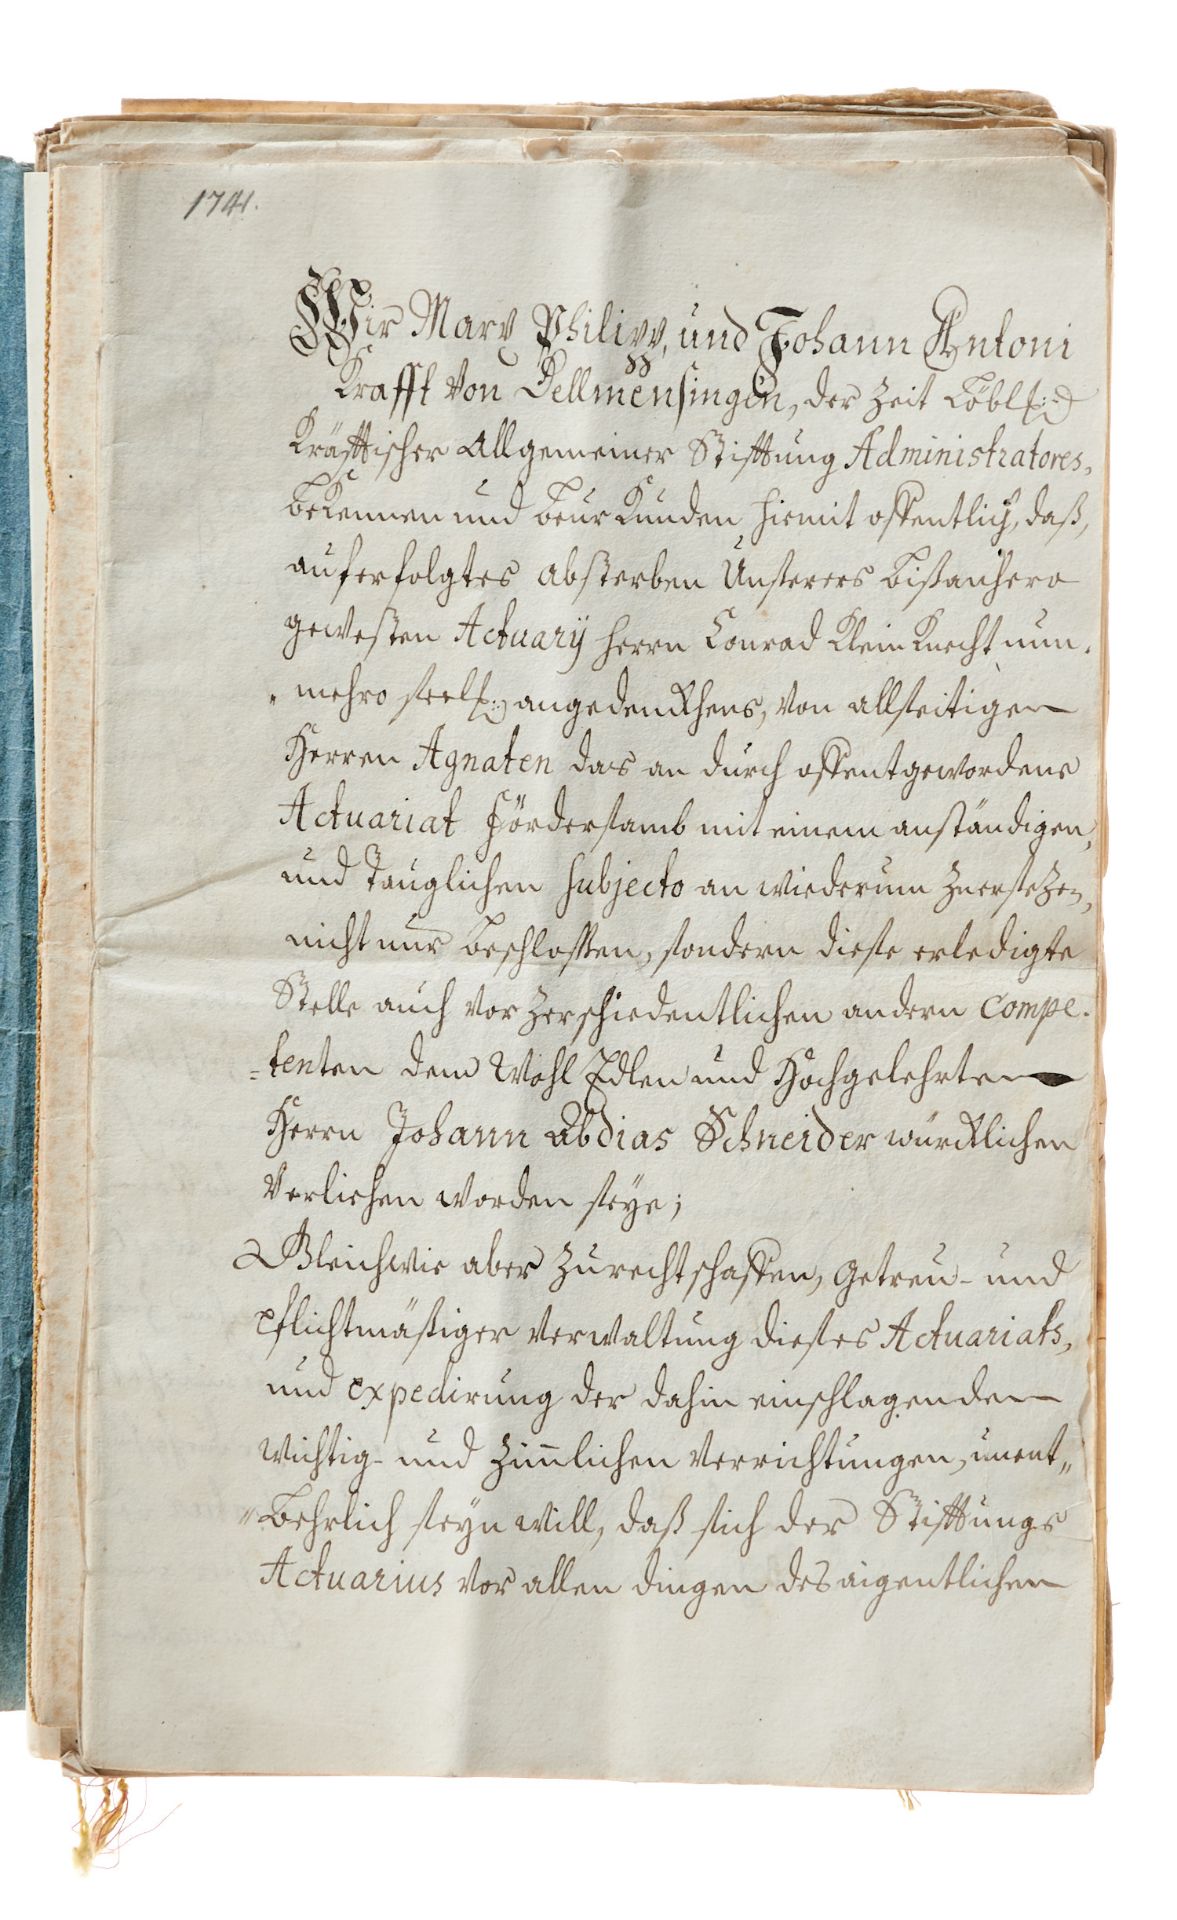 1741.
Wir Marx Philipp, und Johann Antoni
Krafft von Dellmensingen, der Zeit Löbl:
Kräfftischer Allgemeiner Stifftung Administratores,
bekennen und beurkunden hiemit offentlich, daß,
auf erfolgtes absterben Unserers bißanhero
gewesten Actuarij Herrn Conrad Kleinknecht nun-
mehro seel: angedenckhens, von allseitigen
Herren Agnaten das an durch offentgewordene
Actuariat fördersamb mit einem anständigen,
und Tauglichen Subjecto an wiederum zuersezen,
nicht nur beschlossen, sondern diese erledigte
Stelle auch vor zerschiedentlichen andern Compe-
=tenten dem Wohl Edlen und Hochgelehrten
Herrn Johann Abdias Schneider würcklichen
Verliehen worden seye;
Gleichwie aber zu rechtschaffen, getreu- und
pflichtmäßiger Verwaltung dieses Actuariats,
und expedirung der dahin einschlagenden
wichtig- und zimlichen Verrichtungen, unent"
"behrlich seyn will, daß sich der Stifftungs
Actuarius vor allen dingen des aigentlichen